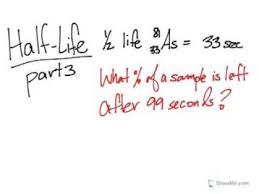 Half-Life
part 3
½ life ⁸¹₃₃As = 33 sec
What % of a sample is left
after 99 seconds?
ShowMe.com